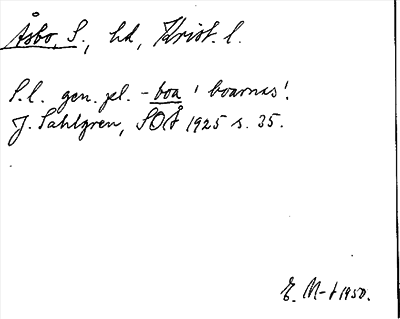 Åsbo, S., hd, Krist. l.
S.l. gen. pl. -boa 'boarnas'.
J. Sahlgren, SOÅ 1925 s. 35.
E. M-t 1950.